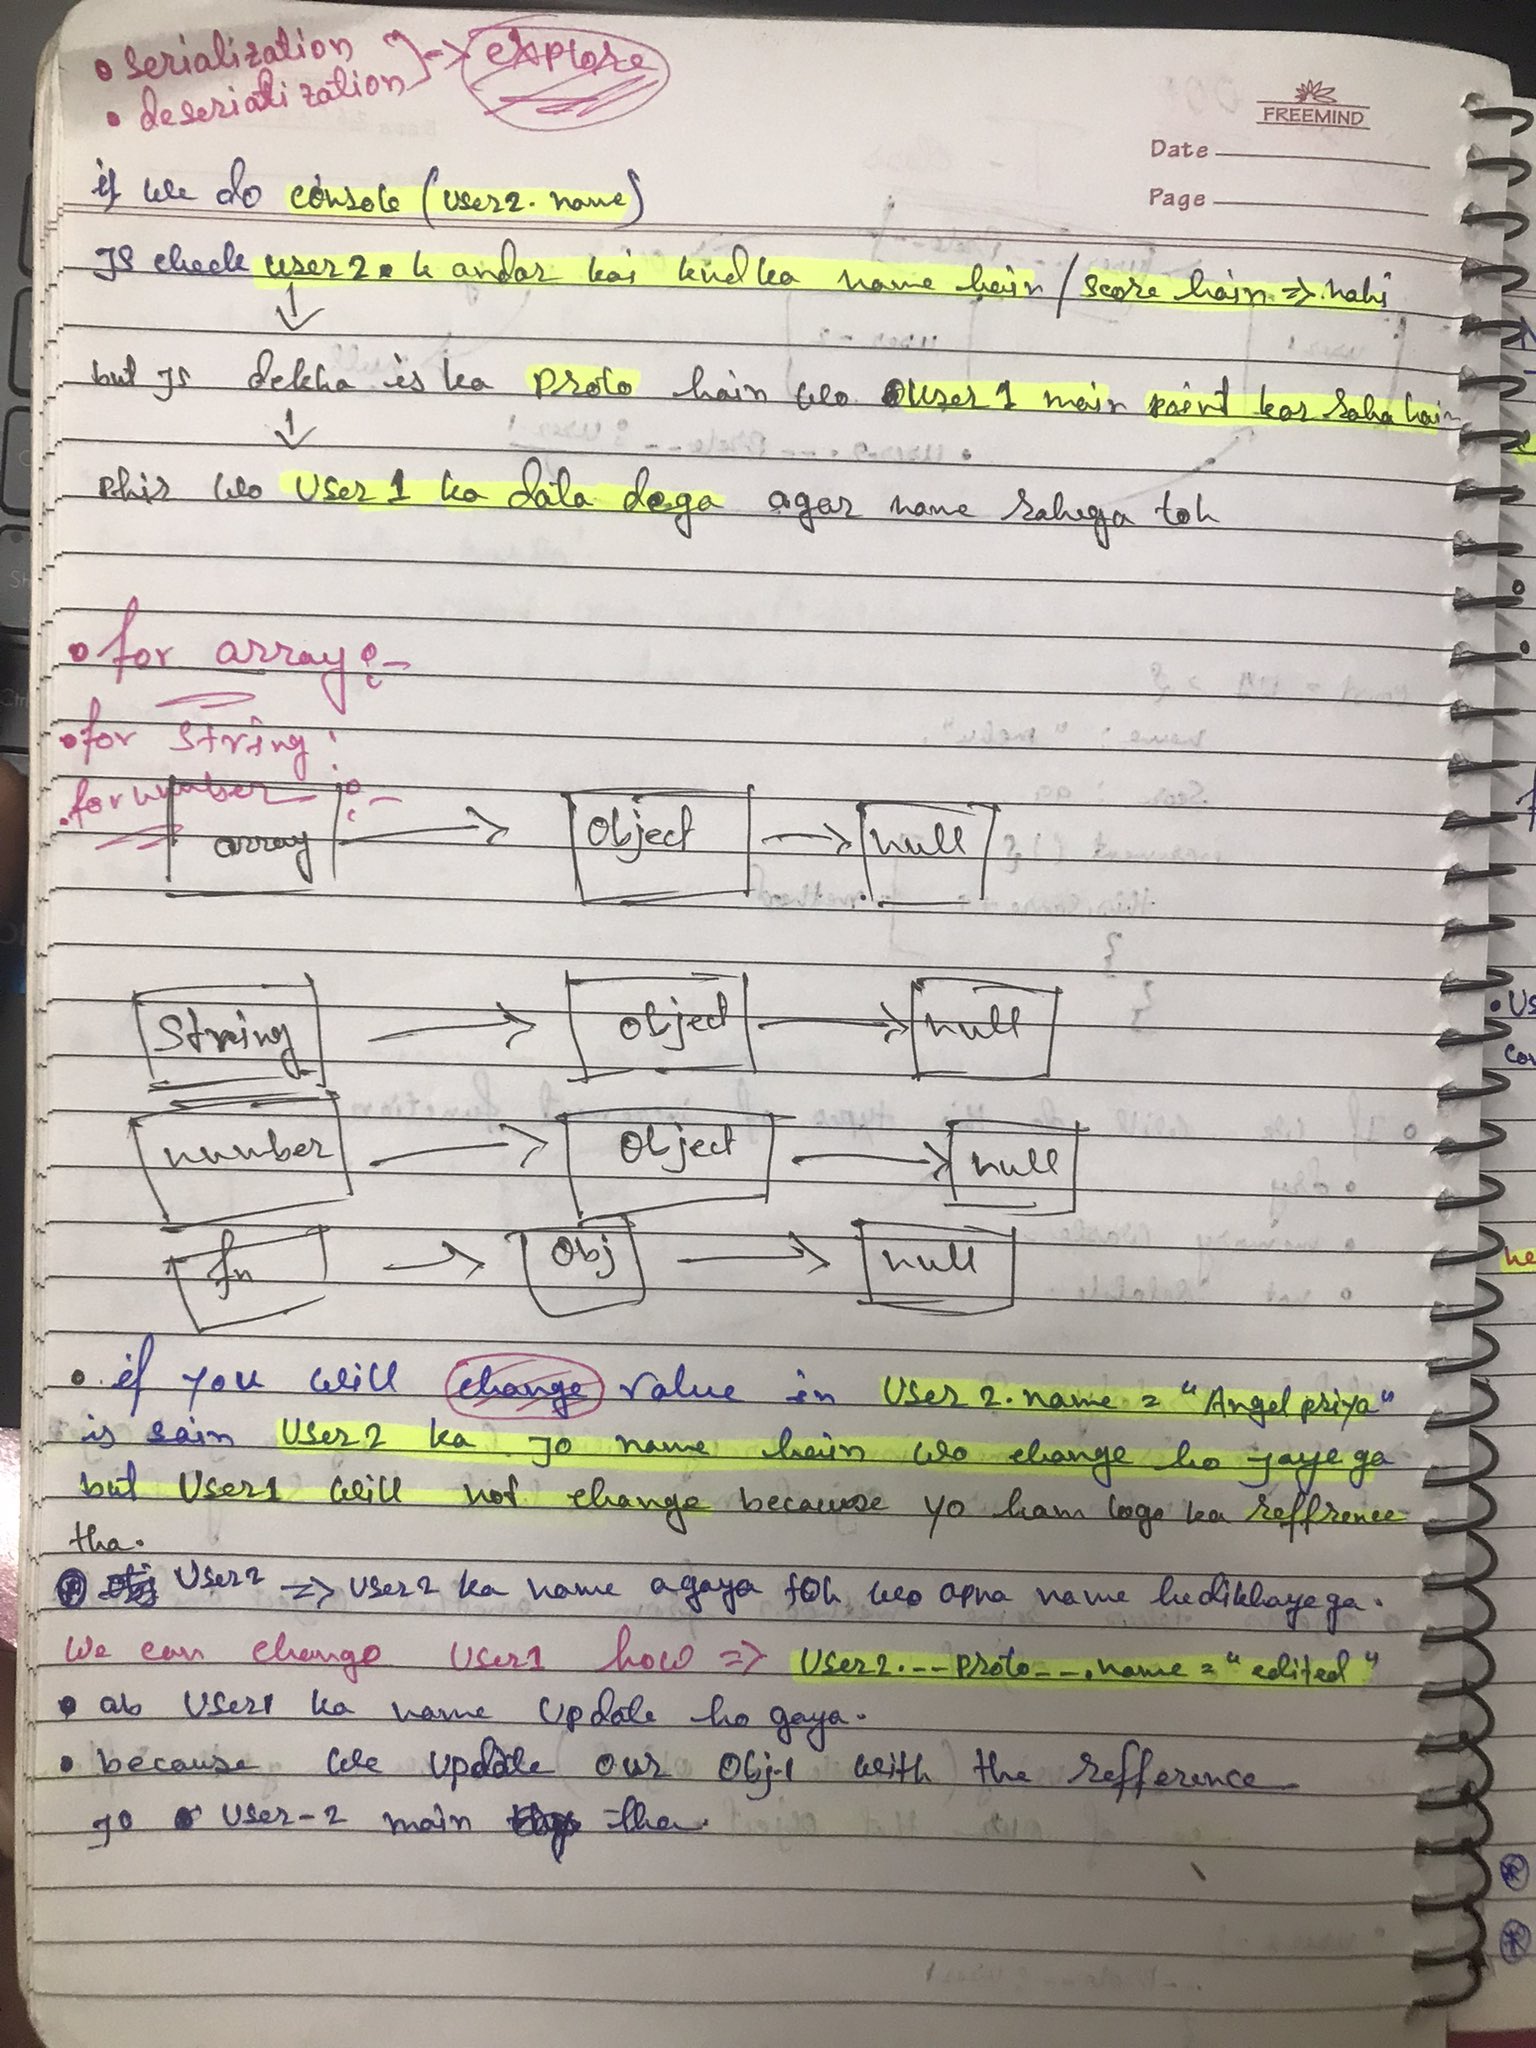 • serialization
• deserialization } -> explore
FREEMIND
Date
Page
if we do console (user2. name)
JS check user2. k andar koi kud ka name hain / score hain => nahi
↓
but JS dekha is ka proto hain wo user 1 main point kar raha hain
↓
phir wo user 1 ka data dega agar name rahega toh
• for array :-
• for string :
• for number :-
array → object → null
String → object → null
number → object → null
fn → obj → null
• if you will change value in user 2. name = "Angel priya"
is sain user 2 ka jo name hain wo change ho jayega
but user1 will not change because yo ham logo ka reffrence
tha.
user2 => user2 ka name agaya toh wo apna name hedikhayega.
We can change user1 how => user2.--proto--.name = "edited"
• ab user1 ka name update ho gaya.
• because we update our obj-1 with the refference
jo user-2 main tha.